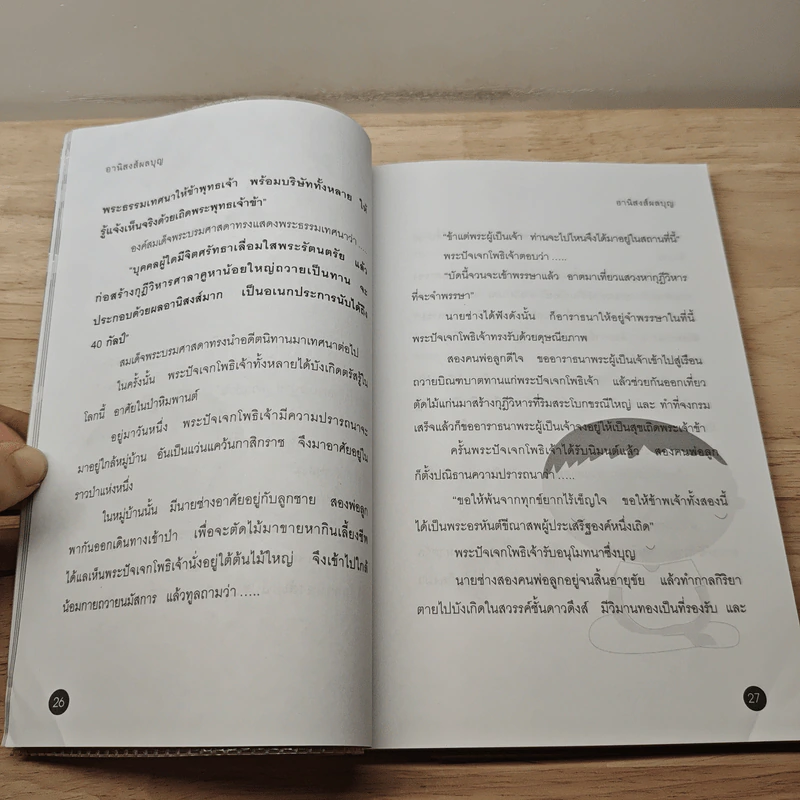 อานิสงส์ผลบุญ
พระธรรมเทศนาให้ข้าพุทธเจ้า พร้อมบริษัททั้งหลาย ให้
รู้แจ้งเห็นจริงด้วยเถิดพระพุทธเจ้าข้า”
องค์สมเด็จพระบรมศาสดาทรงแสดงพระธรรมเทศนาว่า ....
“บุคคลผู้ใดมีจิตศรัทธาเลื่อมใสพระรัตนตรัย แล้ว
ก่อสร้างกุฏีวิหารศาลาคูหาน้อยใหญ่ถวายเป็นทาน จะ
ประกอบด้วยผลอานิสงส์มาก เป็นอเนกประการนับได้ถึง
40 กัลป์”
สมเด็จพระบรมศาสดาทรงนำอดีตนิทานมาเทศนาต่อไป
ในครั้งนั้น พระปัจเจกโพธิเจ้าทั้งหลายได้บังเกิดตรัสรู้ใน
โลกนี้ อาศัยในป่าหิมพานต์
อยู่มาวันหนึ่ง พระปัจเจกโพธิเจ้ามีความปรารถนาจะ
มาอยู่ใกล้หมู่บ้าน อันเป็นแว่นแคว้นกาสิกราช จึงมาอาศัยอยู่ใน
ราวป่าแห่งหนึ่ง
ในหมู่บ้านนั้น มีนายช่างอาศัยอยู่กับลูกชาย สองพ่อลูก
พากันออกเดินทางเข้าป่า เพื่อจะตัดไม้มาขายหากินเลี้ยงชีพ
ได้แลเห็นพระปัจเจกโพธิเจ้านั่งอยู่ใต้ต้นไม้ใหญ่ จึงเข้าไปใกล้
น้อมกายถวายนมัสการ แล้วทูลถามว่า .....
26
อานิสงส์ผลบุญ
“ข้าแต่พระผู้เป็นเจ้า ท่านจะไปไหนจึงได้มาอยู่ในสถานที่นี้”
พระปัจเจกโพธิเจ้าตอบว่า .....
“บัดนี้จวนจะเข้าพรรษาแล้ว อาตมาเที่ยวแสวงหากุฏีวิหาร
ที่จะจำพรรษา”
นายช่างได้ฟังดังนั้น ก็อาราธนาให้อยู่จำพรรษาในที่นี้
พระปัจเจกโพธิเจ้าทรงรับด้วยดุษณียภาพ
สองคนพ่อลูกดีใจ ขออาราธนาพระผู้เป็นเจ้าเข้าไปสู่เรือน
ถวายบิณฑบาตทานแก่พระปัจเจกโพธิเจ้า แล้วช่วยกันออกเที่ยว
ตัดไม้แก่นมาสร้างกุฏีวิหารที่ริมสระโบกขรณีใหญ่ และ ทำที่จงกรม
เสร็จแล้วก็ขออาราธนาพระผู้เป็นเจ้าจงอยู่ให้เป็นสุขเถิดพระเจ้าข้า
ครั้นพระปัจเจกโพธิเจ้าได้รับนิมนต์แล้ว สองคนพ่อลูก
ก็ตั้งปณิธานความปรารถนาว่า .....
“ขอให้พ้นจากทุกข์ยากไร้เข็ญใจ ขอให้ข้าพเจ้าทั้งสองนี้
ได้เป็นพระอรหันต์ขีณาสพผู้ประเสริฐองค์หนึ่งเถิด”
พระปัจเจกโพธิเจ้ารับอนุโมทนาซึ่งบุญ
นายช่างสองคนพ่อลูกอยู่จนสิ้นอายุขัย แล้วทำกาลกิริยา
ตายไปบังเกิดในสวรรค์ชั้นดาวดึงส์ มีวิมานทองเป็นที่รองรับ และ
27